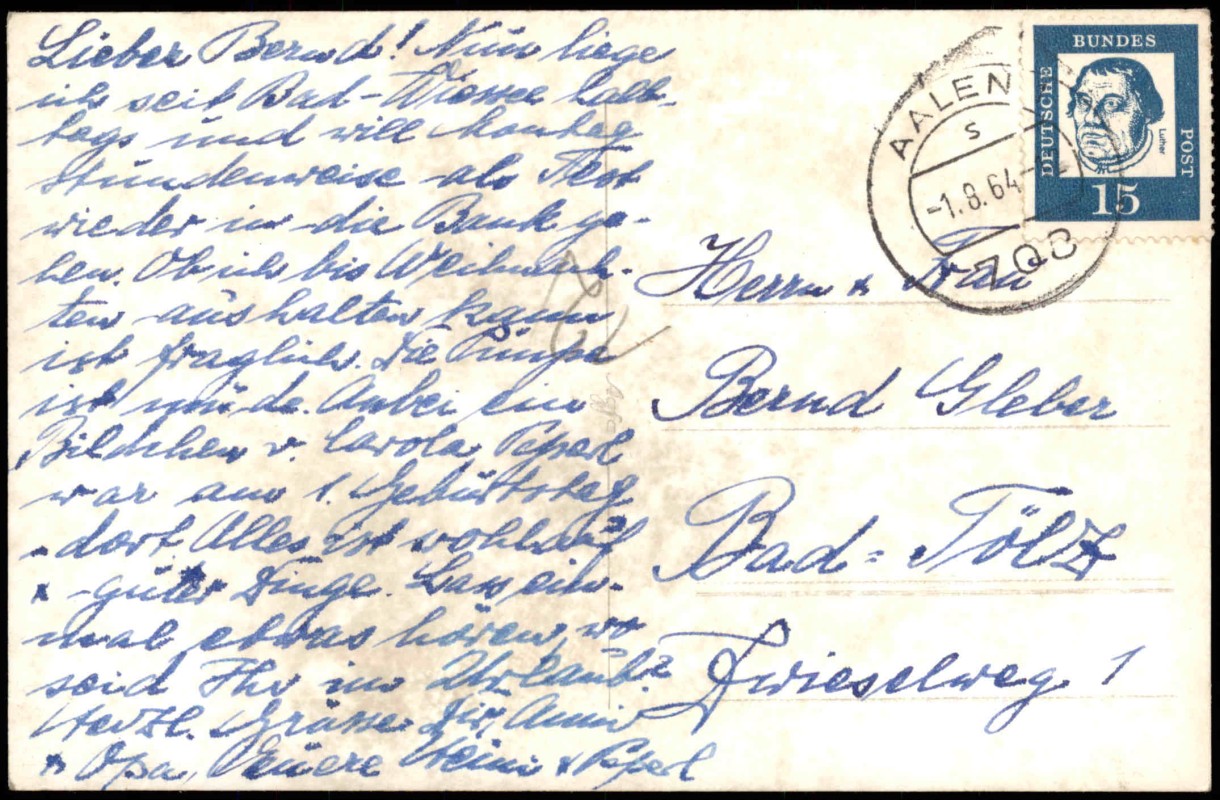 Lieber Bernd! Nun liege
ich seit Bad-Wiessee halb-
tags und will Montag
stundenweise als Test
wieder in die Bank ge-
hen. Ob ich bis Weihnach-
ten aushalten kann
ist fraglich. Die Pumpe
ist müde. Anbei ein
Bildchen v. Carola. Peperl
war am 1. Geburtstag
dort. Alles ist wohlauf
+ guter Dinge. Lass ein-
mal etwas hören, wo
seid Ihr im Urlaub?
Herzl. Grüsse Dir, Anni
+ Opa, Euere Heini + Peperl
AALEN
s
-1.8.64-
DEUTSCHE
BUNDES
POST
Luther
15
Herrn + Frau
Bernd Gleber
Bad=Tölz
Zwieselweg 1